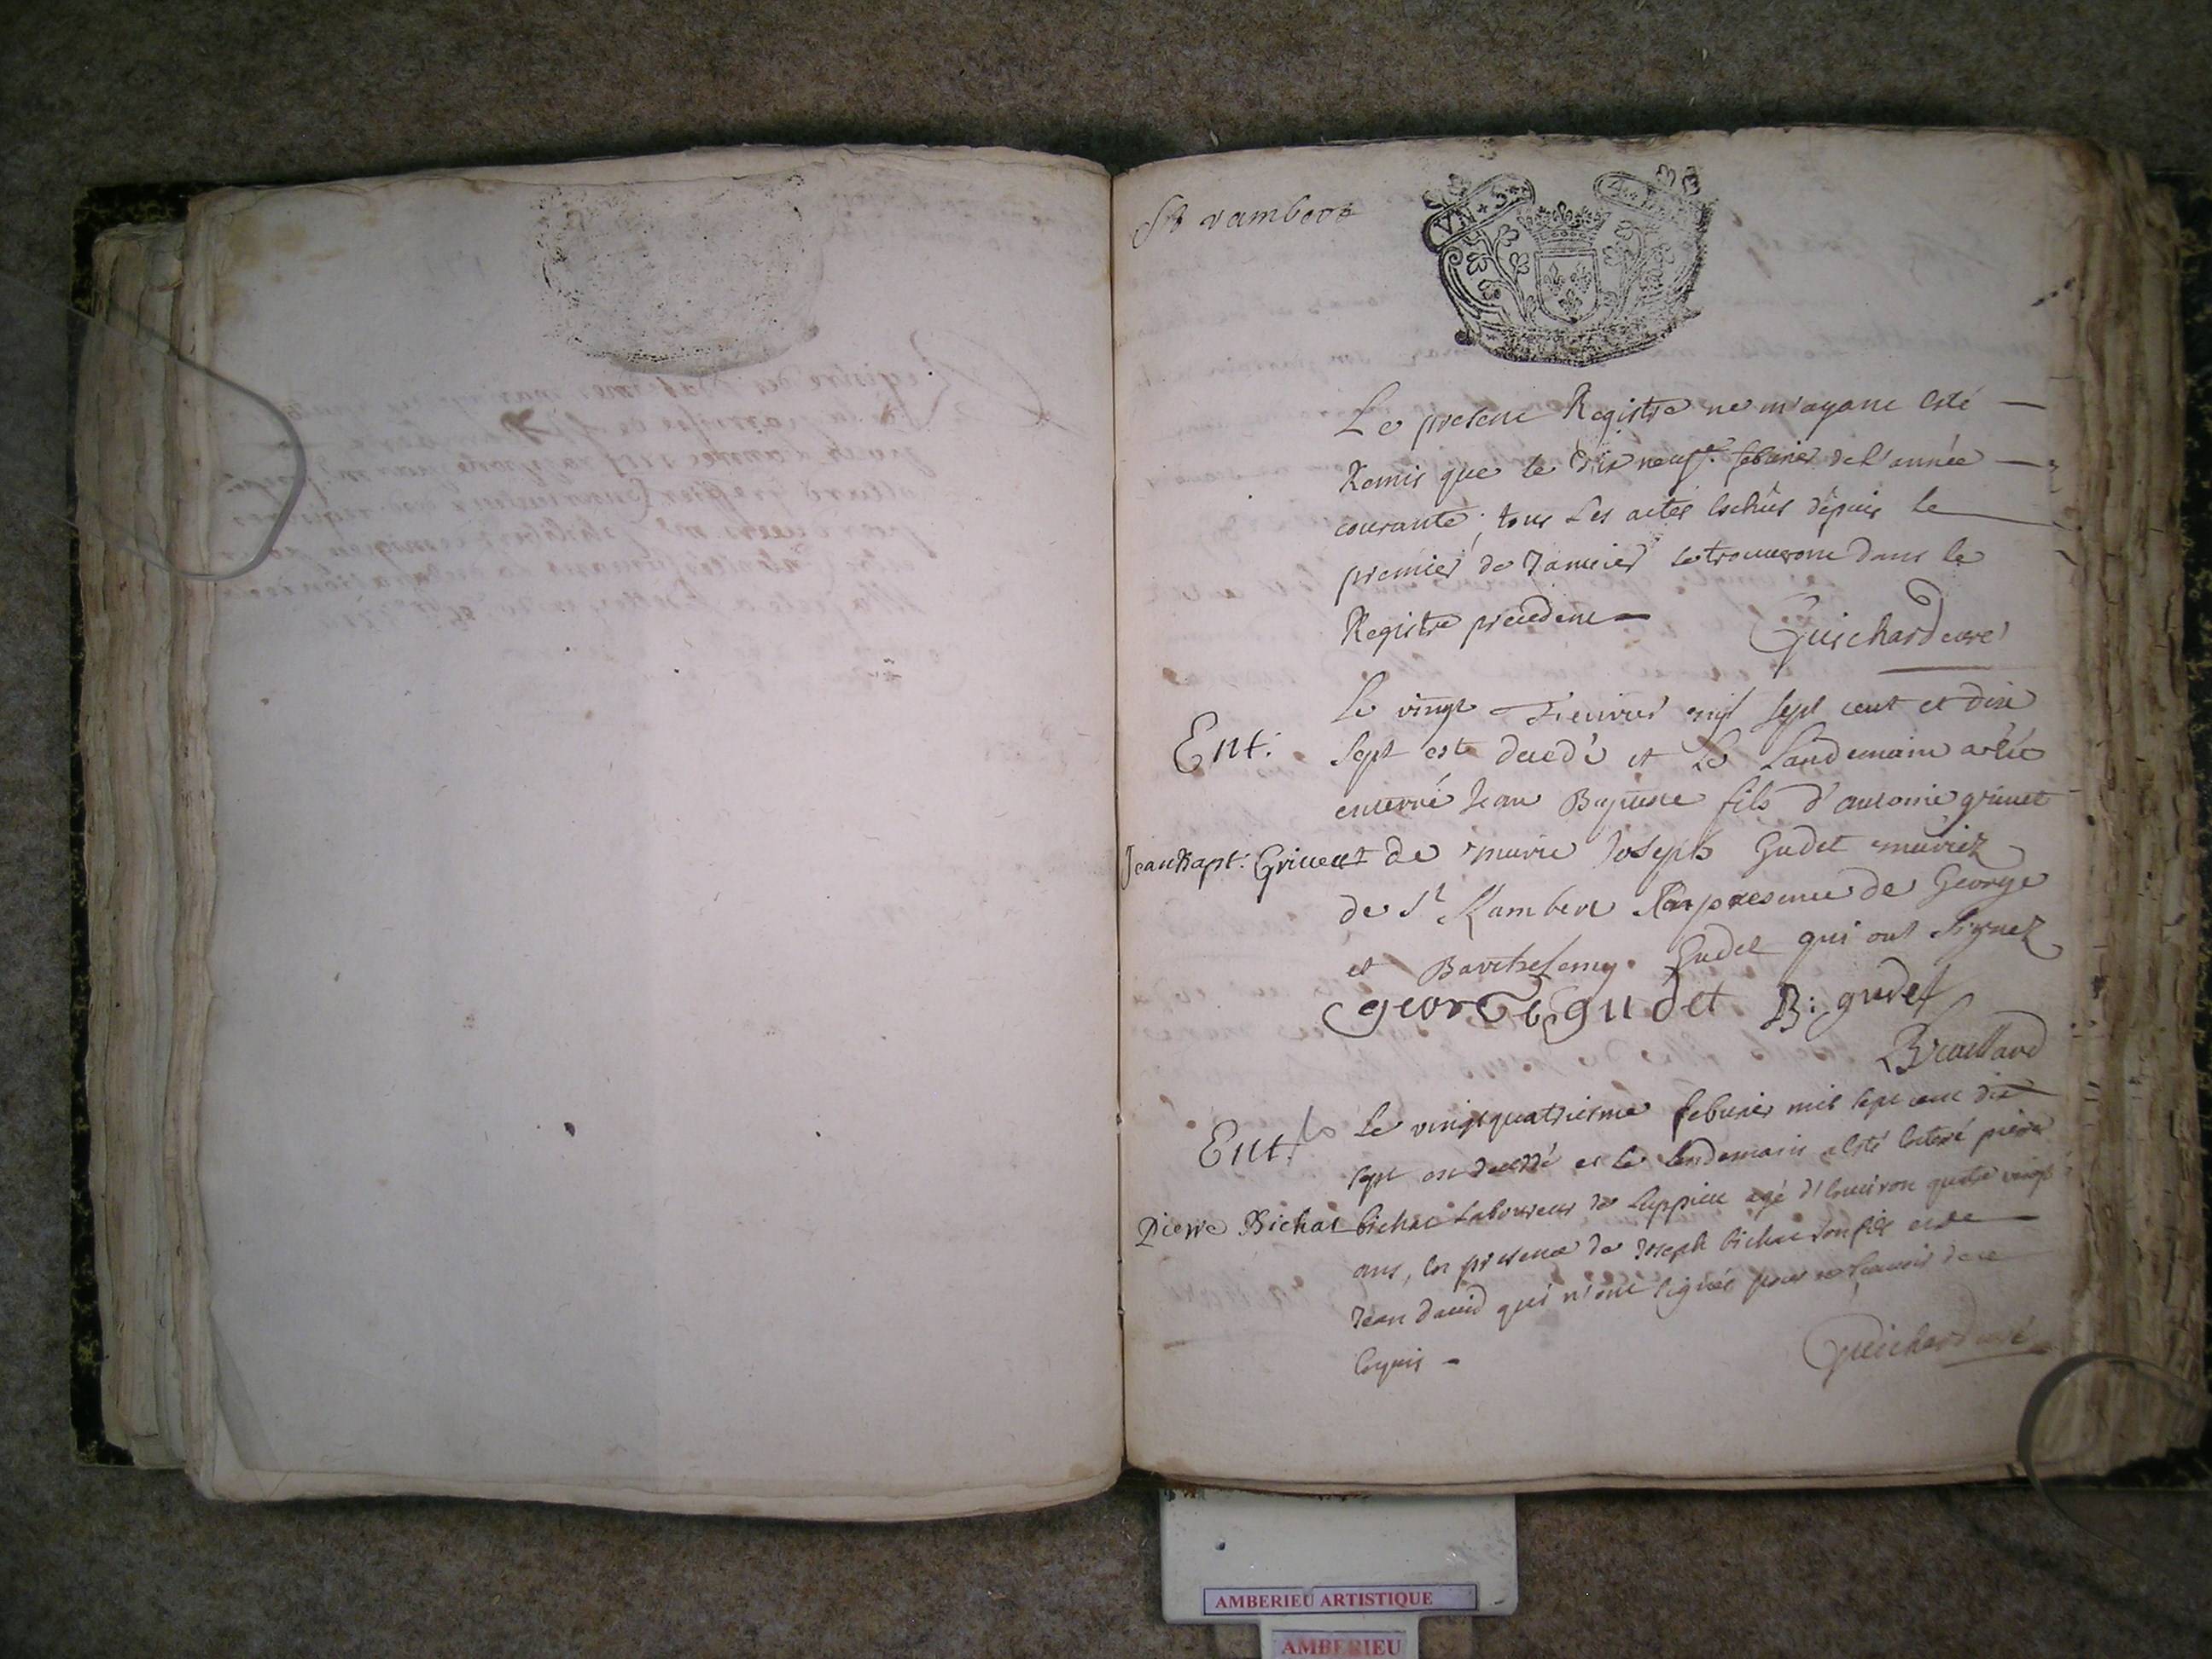 St rambert
Le present Registre ne m'ayant esté
Remis que le dix neuf.e februier de l'année
courante, tous les actes eschûs dépuis le
premier de Januier se trouueront dans le
Registre precedent
Guichard curé
Le vingt feuvrier mil sept cent et dixe
Ent:
sept est decedé et Le Landemain a été
enterré Jean Baptiste fils d'antoine grinet
Jean Bapt: Grinet
et de marie Joseph Gudet mariez
de St Rambert En presence de George
et Barthelemy Gudet qui ont signez
george gudet B: gudet
Braillard
Ent.
Le vingtquatriesme februier mil sept cent dix
sept est decedé et le lendemain a esté enterré pierre
Pierre Bichat
bichat Laboureur de Luppieu agé d'enuiron quatre vingt
ans, en presence de Joseph bichat son fils et de
Jean dauid qui n'ont signés pour ne scauoir de ce
enquis
Guichard curé
AMBERIEU ARTISTIQUE
AMBERIEU